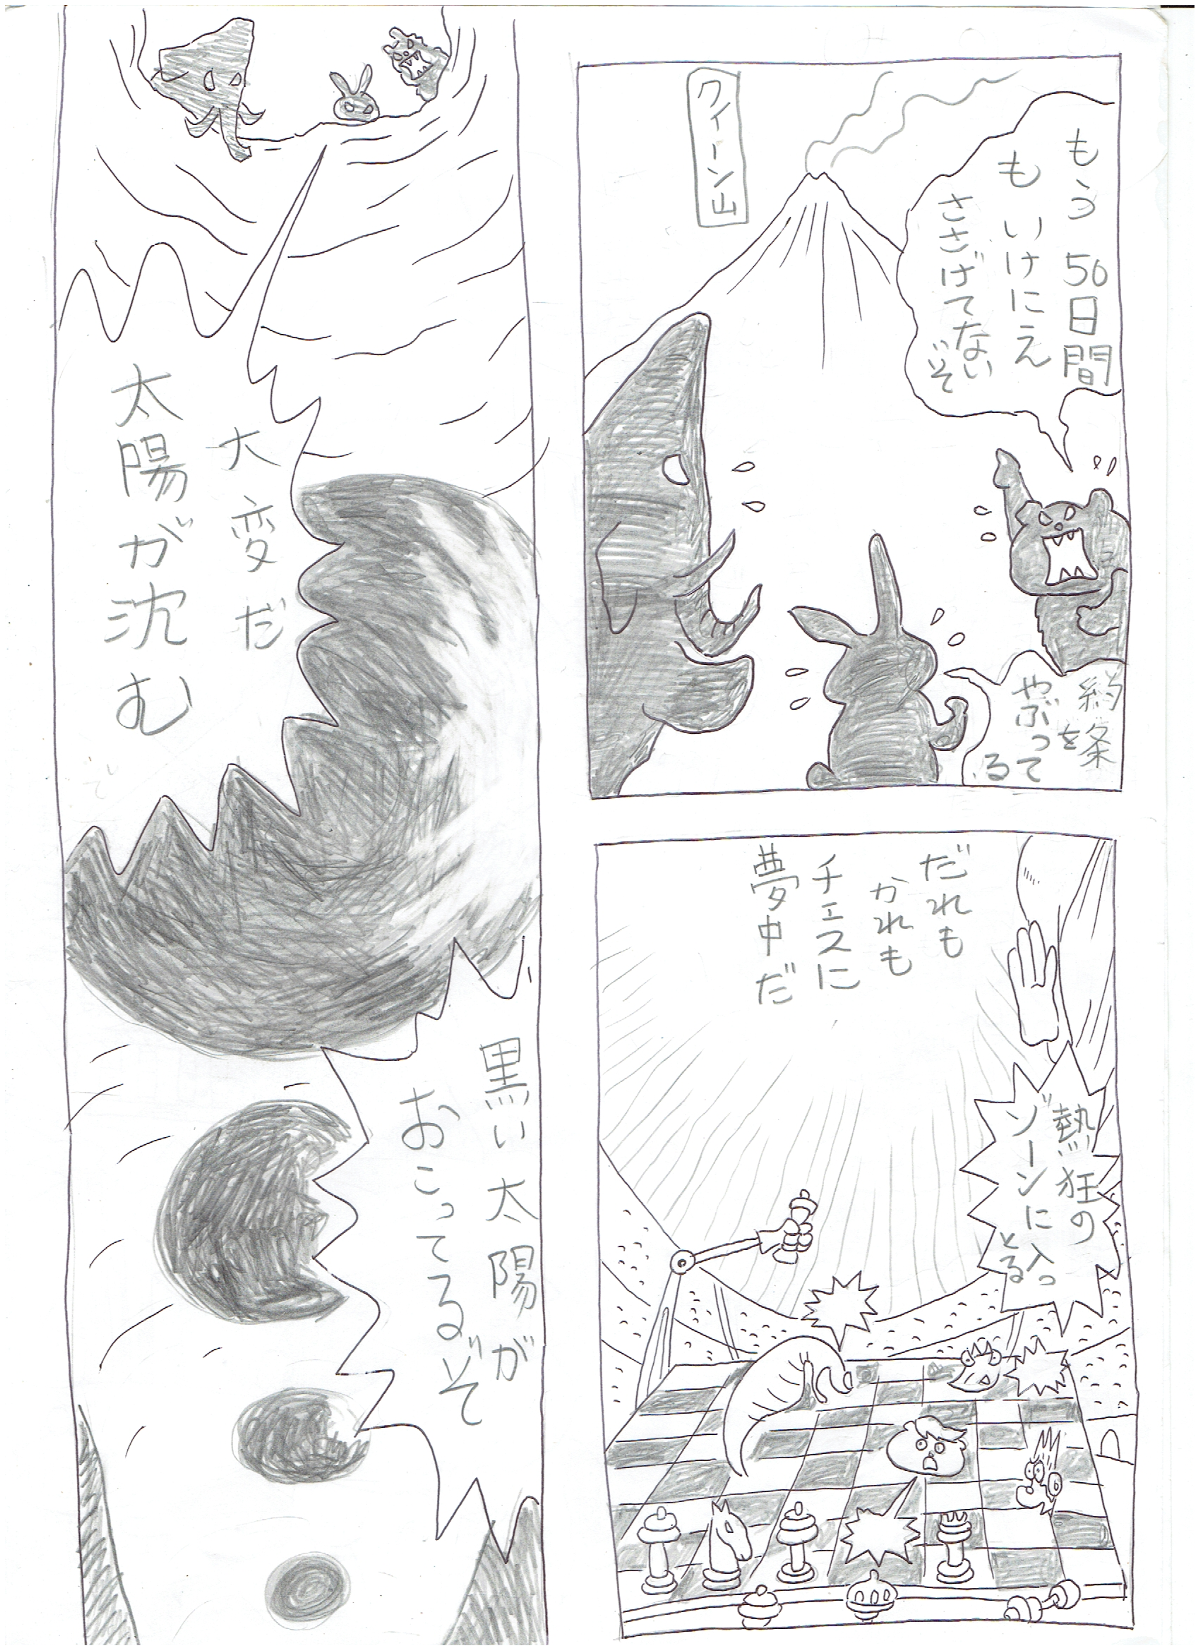 クィーン山
もう50日間
もいけにえ
ささげてない
ぞ
約条を
やぶって
る
だれも
かれも
チェスに
夢中だ
熱狂の
ゾーンに入っ
とる
大変だ
太陽が沈む
黒い太陽が
おこってるぞ